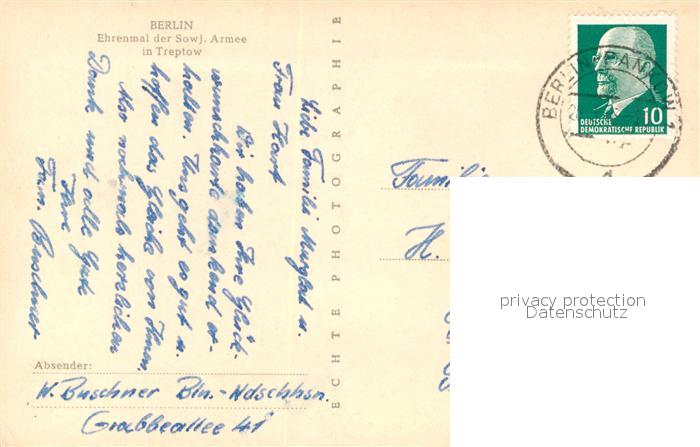 BERLIN
Ehrenmal der Sowj. Armee
in Treptow
Liebe Familie u.
Frau Harf
Wir haben Ihre Glück-
wunschkarte dankend er-
halten. Uns geht es gut u.
hoffen das Gleiche von Ihnen.
Also nochmals herzlichen
Dank und alle Gute
Ihre
Fam. Buschner
Absender:
W. Buschner Bln.-Wdschhsn.
Grabbeallee 41
ECHTE PHOTOGRAPHIE
BERLIN-PANKOW 1
10
DEUTSCHE
DEMOKRATISCHE REPUBLIK
Familie
H.
privacy protection
Datenschutz